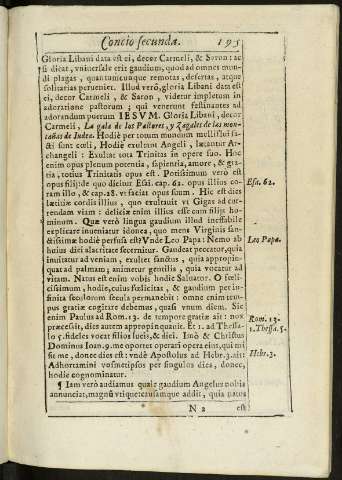 Concio secunda. 195
Gloria Libani data est ei, decor Carmeli, & Saron: ac
si dicat, vniuersale erit gaudium, quod ad omnes mun
di plagas, quantumcunque remotas, desertas, atque
solitarias perueniet. Illud verò, gloria Libani data est
ei, decor Carmeli, & Saron, videtur impletum in
adoratione pastorum; qui venerunt festinantes ad
adorandum puerum IESVM. Gloria Libani, decor
Carmeli, La gala de los Pastores, y Zagales de las mon
tañas de Iudea. Hodiè per totum mundum mellislui fa-
cti sunt cœli, Hodiè exultent Angeli, lætantur Ar-
changeli: Exultat tota Trinitas in opere suo. Hoc
enim opus plenum potentia, sapientia, amore, & gra-
tia, totius Trinitatis opus est. Potissimum verò est
opus filij: de quo dicitur Esai. cap. 62. opus illius co-
ram illo, & cap. 28. vt faciat opus suum. Hic est dies
lætitiæ cordis illius, quo exultauit vt Gigas ad cur-
rendam viam: deliciæ enim illius esse cum filijs ho-
minum. Quæ verò lingua gaudium illud ineffabile
explicare inueniatur idonea, quo mens Virginis san-
ctissimæ hodiè perfusa est? Vnde Leo Papa: Nemo ab
huius diei alacritate secernitur. Gaudeat peccator, quia
inuitatur ad veniam, exultet sanctus, quia appropin-
quat ad palmam; animetur gentilis, quia vocatur ad
vitam. Natus est enim vobis hodie Saluator. O fœli-
cissimum, hodie, cuius fœlicitas, & gaudium per in-
finita seculorum secula permanebit: omne enim tem-
pus gratiæ cogitare debemus, quasi vnum diem. Sic
enim Paulus ad Rom. 13. de tempore gratiæ ait: nox
præcessit, dies autem appropinquauit. Et 1. ad Thessa-
lo 5. fideles vocat filios lucis, & diei. Imò & Christus
Dominus Ioan. 9. me oportet operari opera eius, qui mi
sit me, donec dies est: vndè Apostolus ad Hebr. 3. ait:
Adhortamini vosmetipsos per singulos dies, donec,
hodiè cognominatur.
¶ Iam verò audiamus quale gaudium Angelus nobis
annunciat, magnũ vtique causamque addit, quia natus
N 2 est
Esa. 62.
Leo Papa.
Rom. 13.
1. Thess. 5.
Hebr. 3.